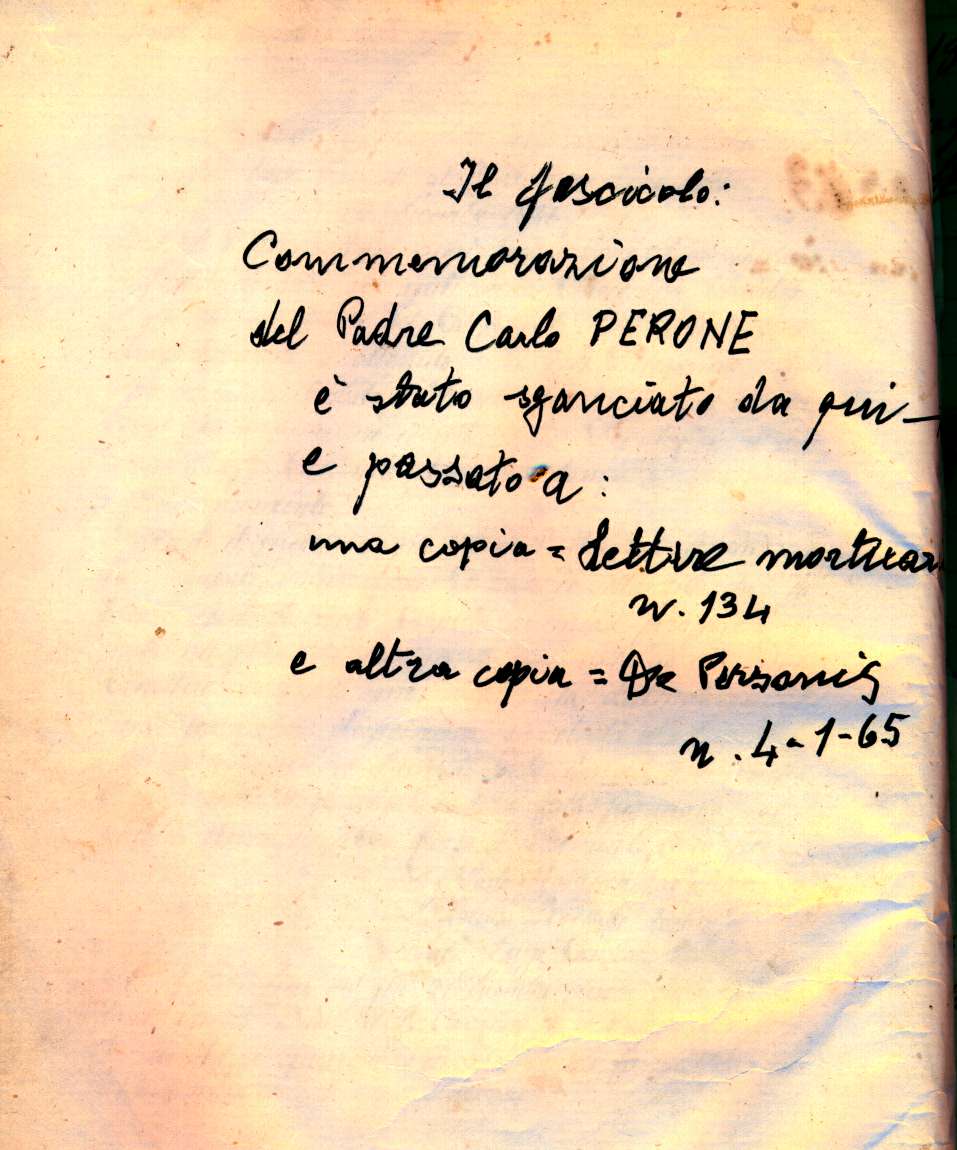 Il fascicolo:
Commemorazione
del Padre Carlo PERONE
è stato sganciato da qui-
e passato a:
una copia = Lettere mortuar
n. 134
e altra copia = De Personis
n. 4-1-65